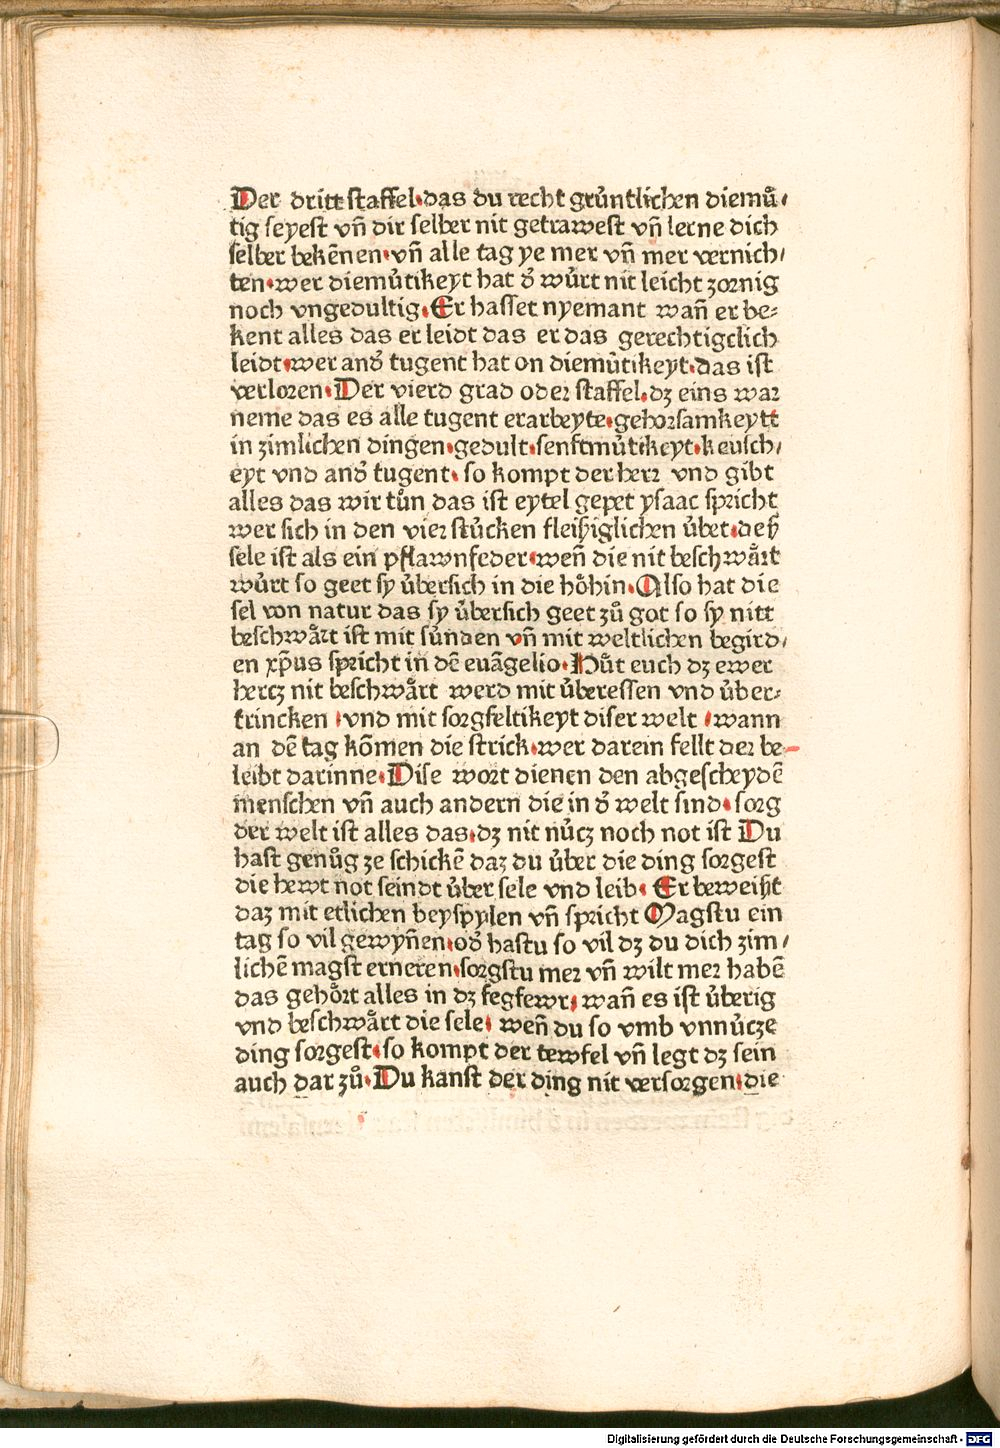 Der dritt staffel·das du recht gruͤntlichen diemuͤ⸗
tig seyest vñ dir selber nit getrawest vñ lerne dich
selber bekẽnen·vñ alle tag ye mer vñ mer vernich⸗
ten·wer diemuͤtikeyt hat d̕ wuͤrt nit leicht zornig
noch vngedultig·Er hasset nyemant wañ er be⸗
kent alles das er leidt das er das gerechtigclich
leidt·wer and̕ tugent hat on diemuͤtikeyt·das ist
verloren·Der vierd grad oder staffel·dz eins war
neme das es alle tugent erarbeyte·gehorsamkeytt
in zimlichen dingen·gedult·senftmuͤtikeyt·keusch⸗
eyt vnd and̕ tugent·so kompt der herr vnd gibt
alles das wir tuͦn das ist eytel gepet ysaac spricht
wer sich in den vier stuͤcken fleißiglichen uͤbet·deß
sele ist als ein pflawnfeder·weñ die nit beschwaͤrt
wuͤrt so geet sy uͤbersich in die hoͤhin·Also hat die
sel von natur das sy uͤbersich geet zuͦ got so sy nitt
beschwaͤrt ist mit suͤnden vñ mit weltlichen begird⸗
en xp̃us spricht in dẽ euãgelio·Huͤt euch dz ewer
hercz nit beschwaͤrt werd mit uͤberessen vnd uͤber⸗
trincken /vnd mit sorgfeltikeyt diser welt /wann
an dẽ tag kõmen die strick·wer darein fellt der be⸗
leibt darinne·Dise wort dienen den abgescheydẽ
menschen vñ auch andern die in d̕ welt sind·sorg
der welt ist alles das·dz nit nuͤcz noch not ist Du
hast genuͦg ze schickẽ daz du uͤber die ding sorgest
die hewt not seindt uͤber sele vnd leib· Er beweißt
daz mit etlichen beyspylen vñ spricht Magstu ein
tag so vil gewyñen·od̕ hastu so vil dz du dich zim⸗
lichẽ magst erneren·sorgstu mer vñ wilt mer habẽ
das gehoͤrt alles in dz fegfewr· wañ es ist uͤberig
vnd beschwaͤrt die sele· weñ du so vmb vnnuͤcze
ding sorgest·so kompt der tewfel vñ legt dz sein
auch dar zuͦ·Du kanst der ding nit versorgen·die
Digitalisierung gefördert durch die Deutsche Forschungsgemeinschaft - DFG